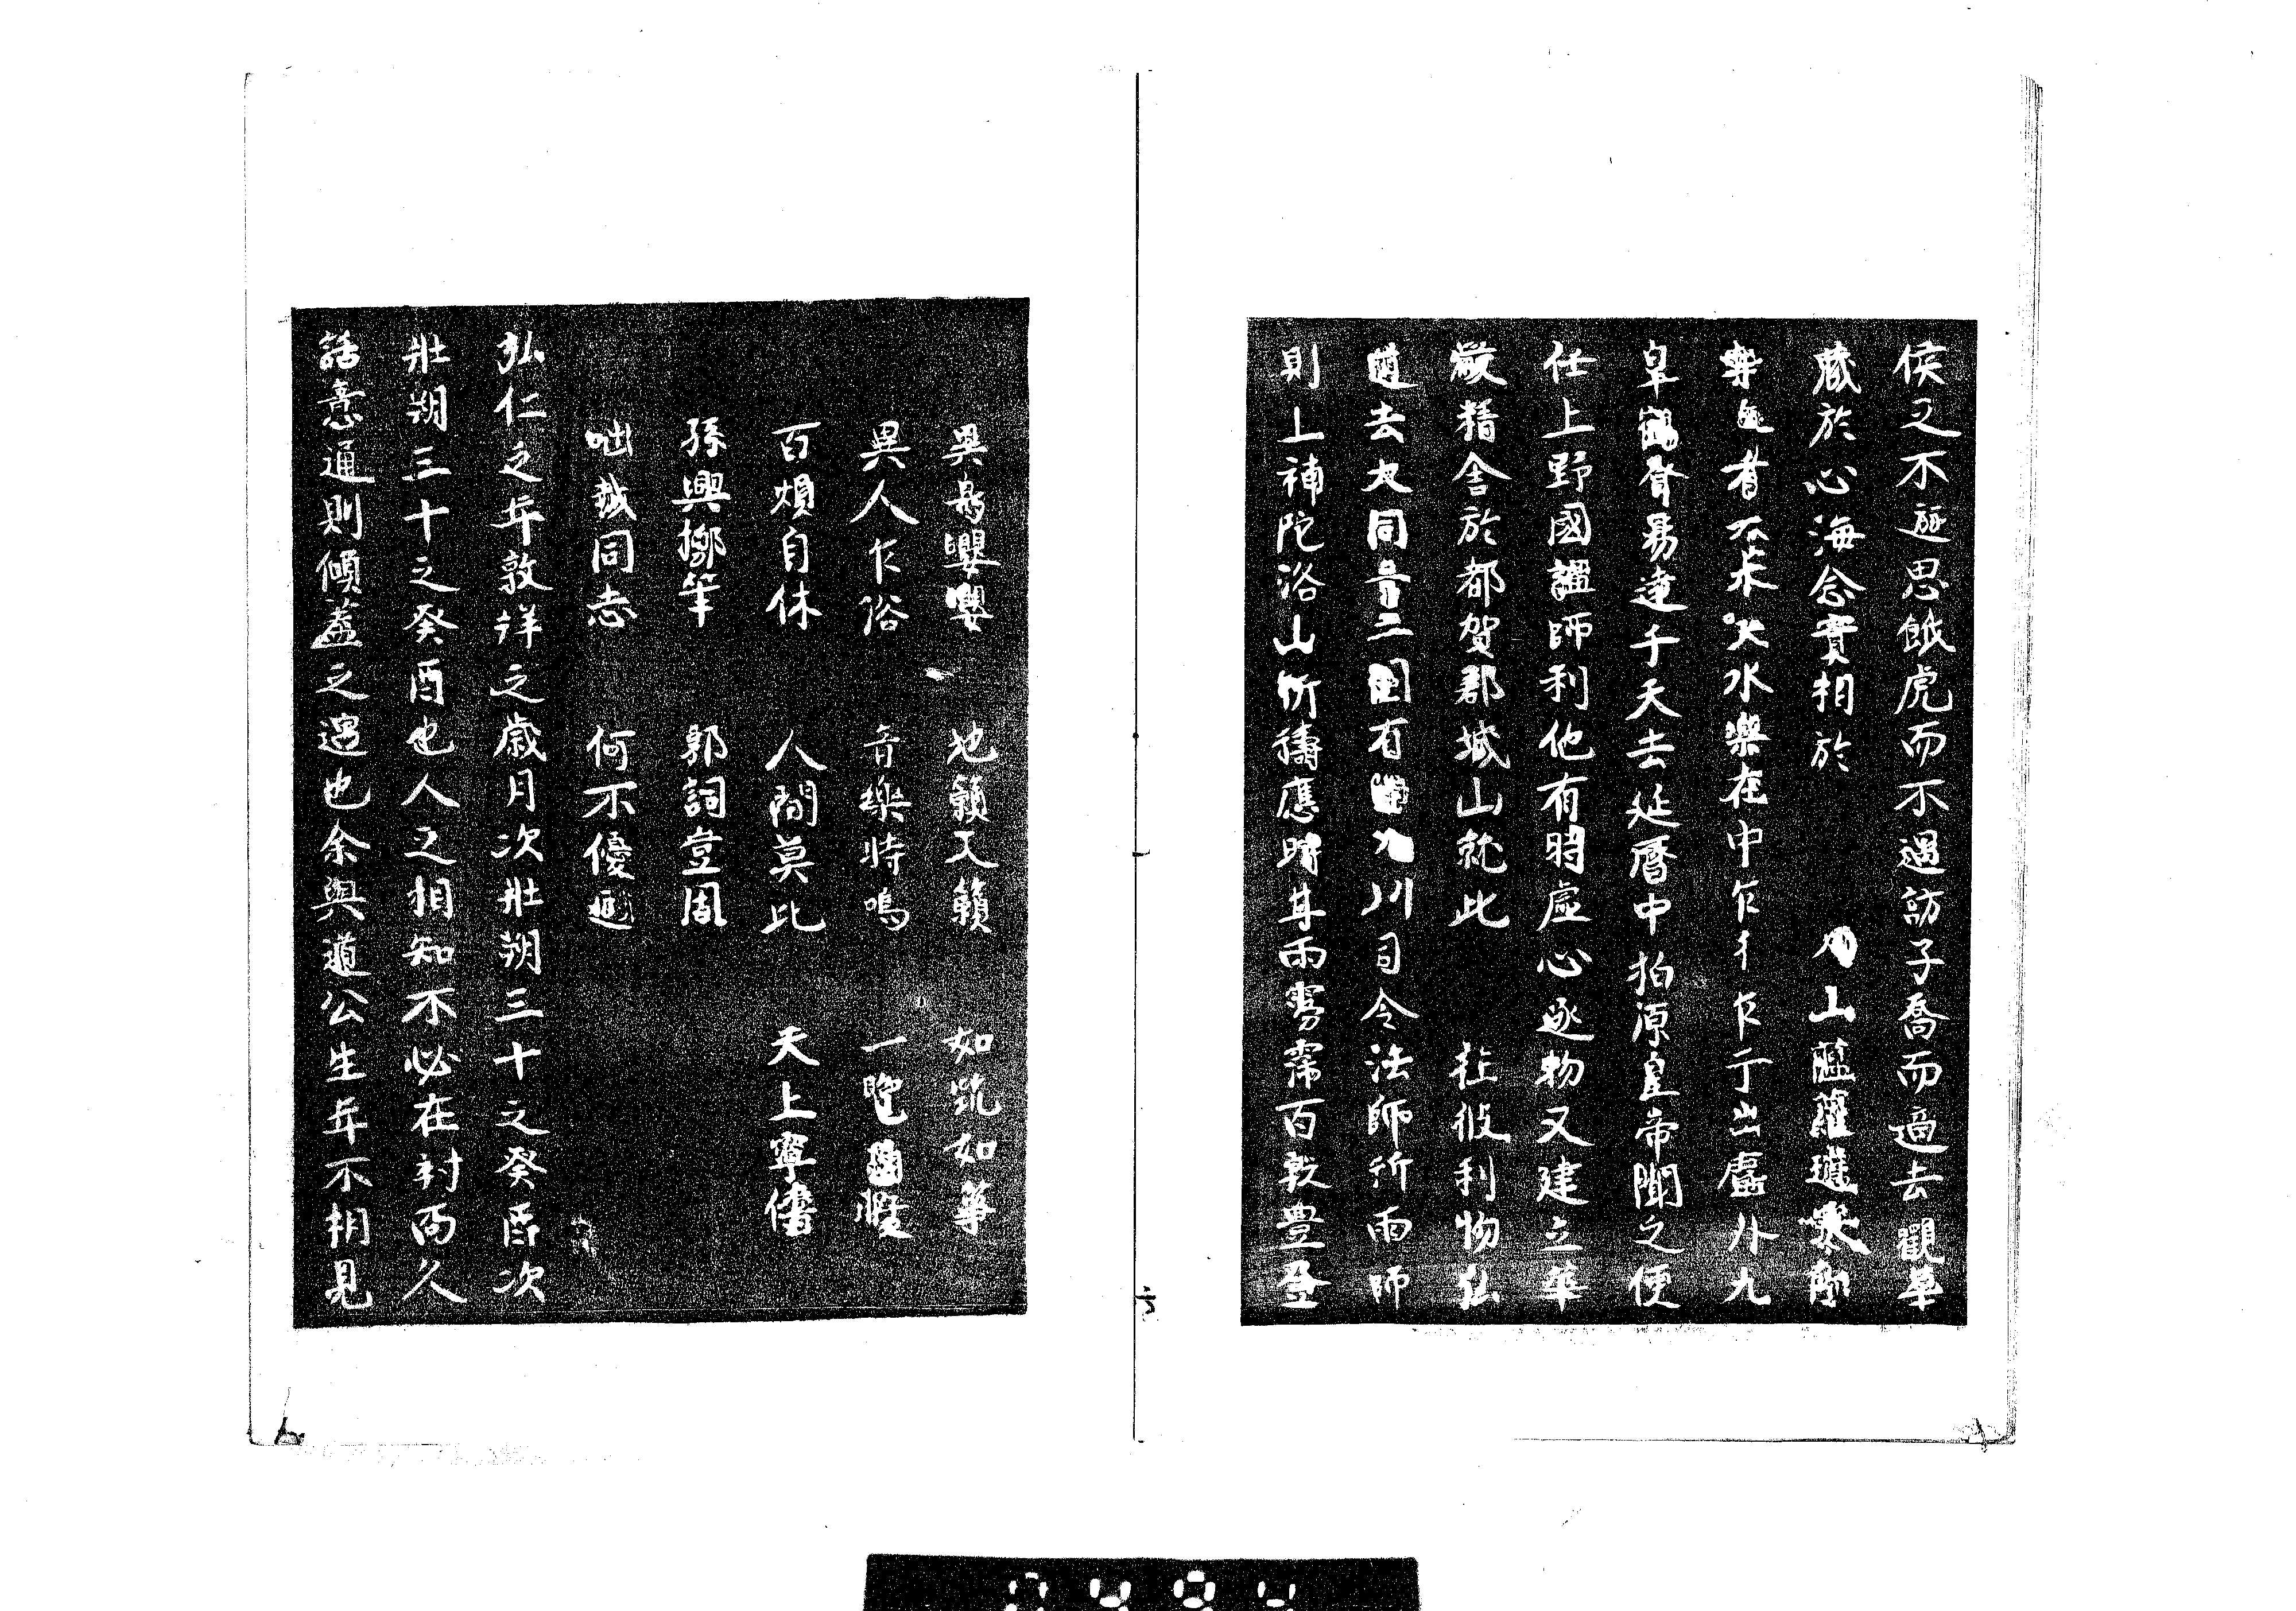 侯又不遊思餓虎而不過訪子喬而適去觀華
藏於心海念實相於山蘿薜遮寒
在中乍彳乍亍出處外九
皐鶴聲易達于天去延曆中柏原皇帝聞之便
任上野國講師利他有時虛心逐物又建立華
嚴精舍於都賀郡城山就此往彼利物弘
道去大同有川司令法師祈雨師
則上補陀洛山祈禱應時甘雨霶霈百穀豊登
異鳥嚶嚶 地籟天籟 如筑如箏
異人乍浴 音樂時鳴 一覽
百煩自休 人間莫比 天上寧儔
孫興擲筆 郭詞豈周
咄哉同志 何不優
弘仁之年敦牂之歲月次壯朔三十之癸酉次
壯朔三十之癸酉也人之相知不必在対面久
話意通則傾蓋之遇也余與道公生年不相見
六